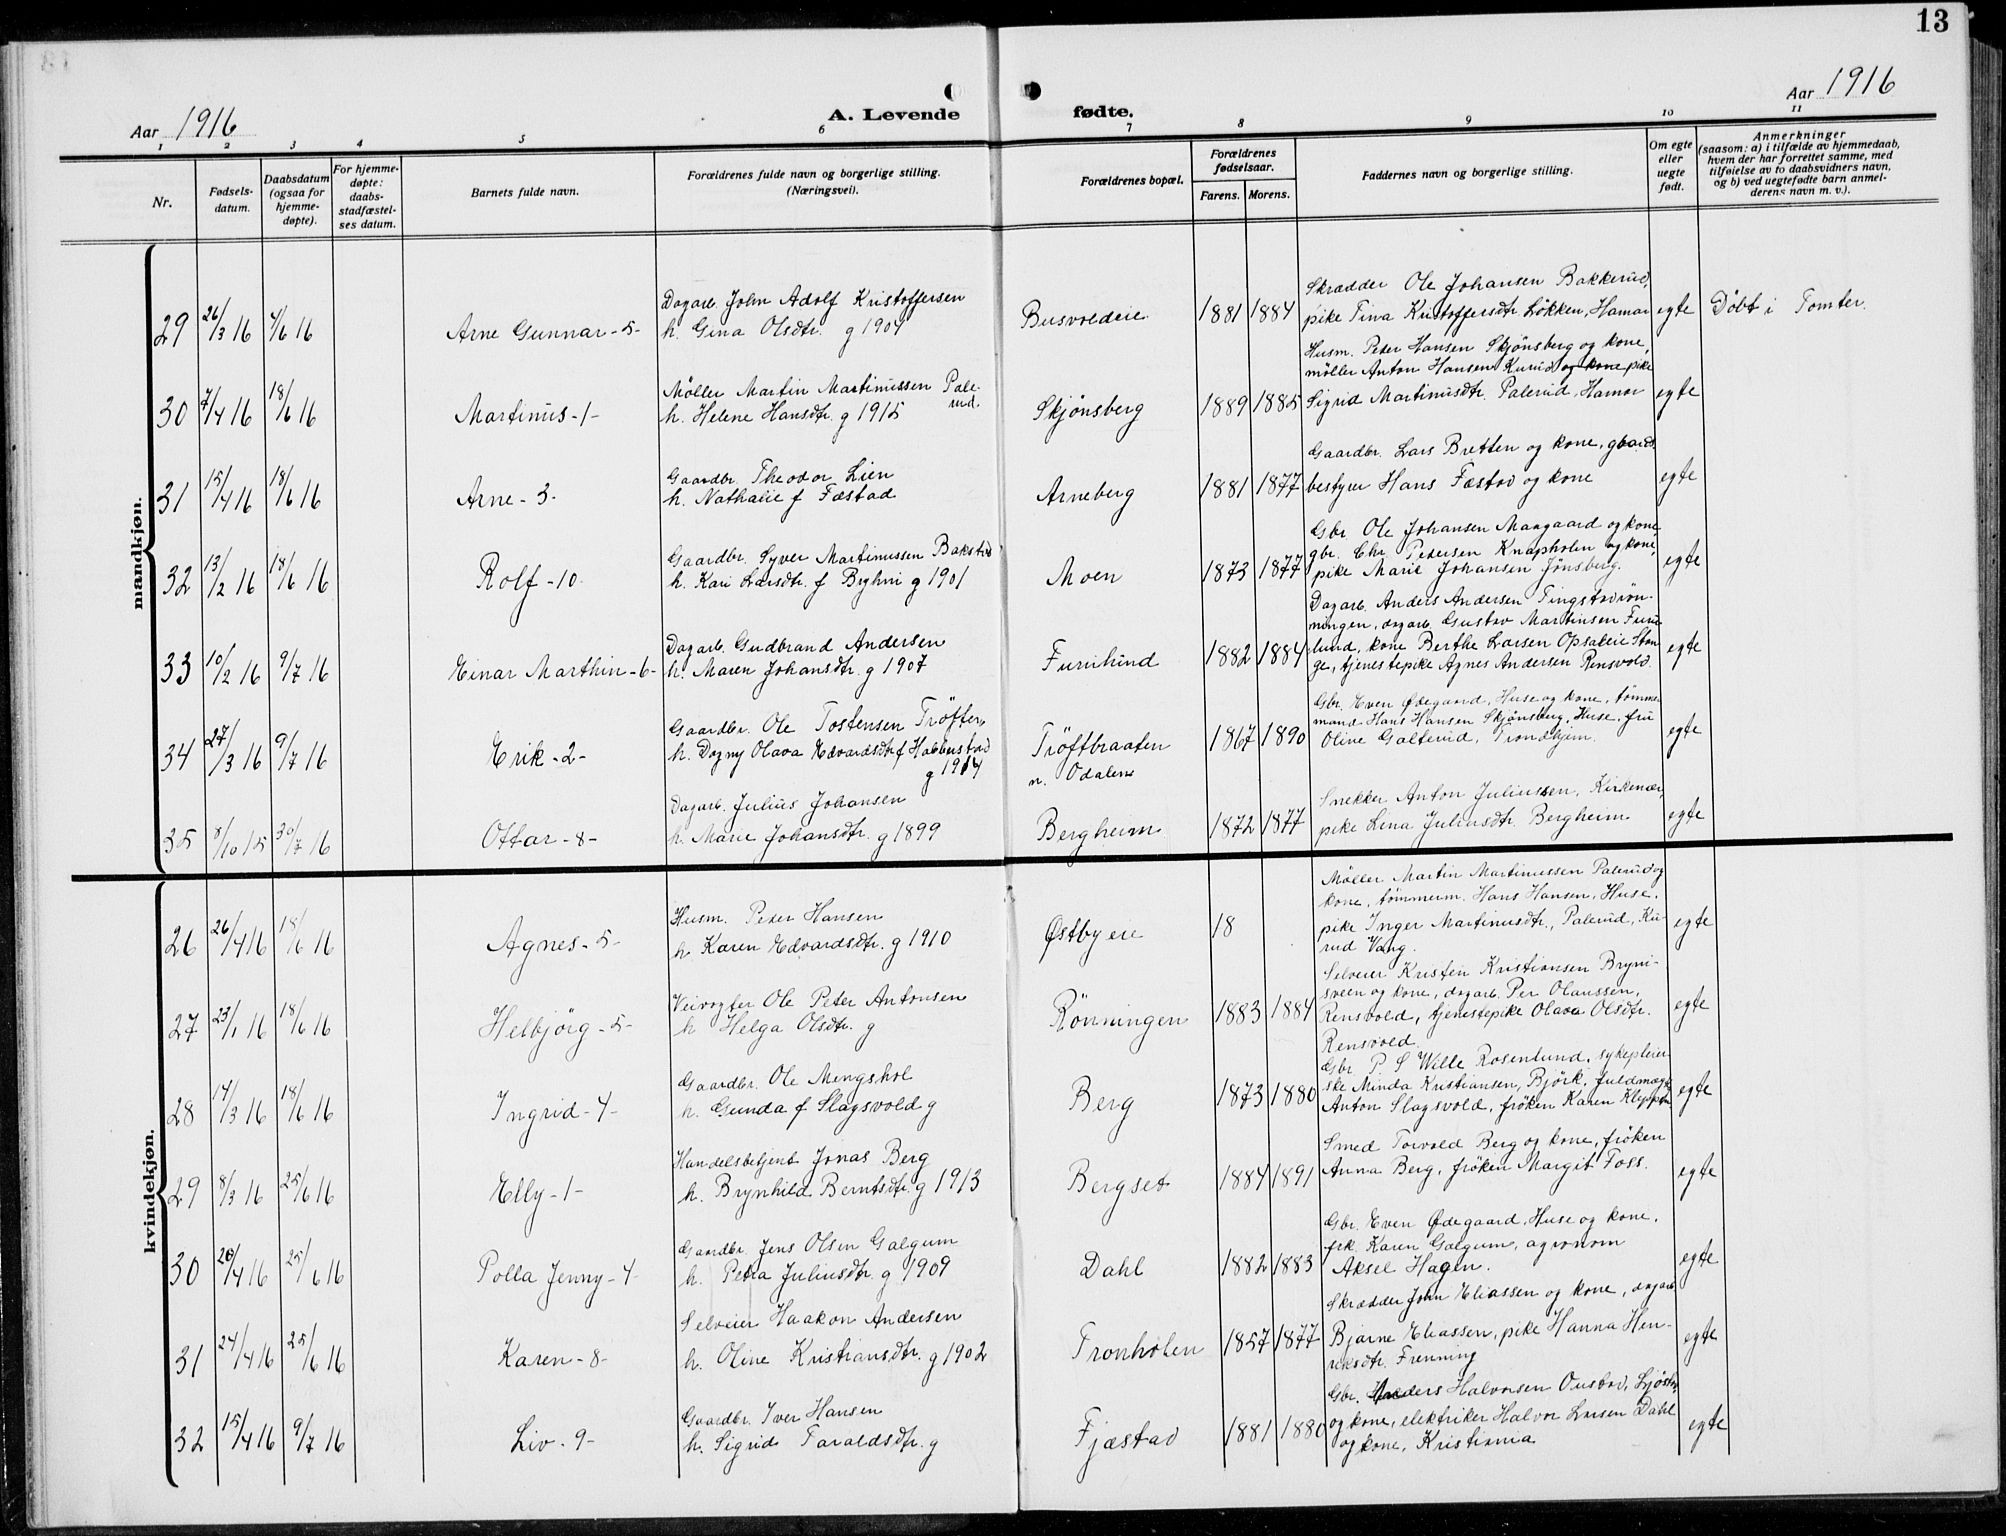 13
Aar 1916
A. Levende fødte.
Aar 1916
1 2 3 4 5 6 7 8 9 10 11
Nr.
Fødsels-
datum.
Daabsdatum
(ogsaa for
hjemme-
døpte).
For hjemme-
døpte:
daabs-
stadfæstel-
ses datum.
Barnets fulde navn.
Forældrenes fulde navn og borgerlige stilling.
(Næringsvei).
Forældrenes bopæl.
Forældrenes
fødselsaar.
Farens. Morens.
Faddernes navn og borgerlige stilling.
Om egte
eller
uegte
født.
Anmerkninger
(saasom: a) i tilfælde av hjemmedaab,
hvem der har forrettet samme, med
tilføielse av to daabsvidners navn,
og b) ved uegtefødte barn anmel-
derens navn m. v.).
mandkjøn.
29 26/3 16 4/6 16 Arne Gunnar - 5 -
Dagarb. John Adolf Kristoffersen
h. Gina Olsdtr. g 1904
Busvoldeie 1881 1884
Skrædder Ole Johansen Bakkerud,
pike Tina Kristoffersdtr Løkken, Hamar
egte Döbt i Tomter.
30 7/4 16 18/6 16 Martinus - 1 -
Møller Martin Martinussen Pale-
rud.
h. Helene Hansdtr. g 1915
Skjönsberg 1889 1885
Husm. Peter Hansen Skjönsberg og kone,
möller Anton Hansen Kurud og kone pike
Sigrid Martinusdtr. Palerud, Hamar
egte
31 15/4 16 18/6 16 Arne - 3 -
Gaardbr. Theodor Lien
h. Nathalie f Fæstad
Arneberg 1881 1877
Gaardbr. Lars Bretten og kone, gaards
bestyrer Hans Fæstad og kone
egte
32 13/2 16 18/6 16 Rolf - 10 -
Gaardbr. Syver Martinussen Bakstad
h. Kari Larsdtr. f Bryhni g 1901
Moen 1873 1877
Gbr. Ole Johansen Maagaard og kone,
gbr. Chr. Petersen Knapholen og kone,
pike Marie Johansen Jönsberg.
egte
33 10/2 16 9/7 16 Einar Marthin - 6 -
Dagarb. Gudbrand Andersen
h. Maren Johansdtr. g 1907
Furulund 1882 1884
Dagarb. Anders Andersen Tingstadrön-
ningen, dagarb. Gustav Martinsen Furu
lund, kone Berthe Larsen Opsaleie Stan
ge, tjenestepike Agnes Andersen Rensvold.
egte
34 27/3 16 9/7 16 Erik - 2 -
Gaardbr. Ole Tostensen Tröften
h. Dagny Olava Edvardsdtr f Habberstad
g 1914
Tröftbraaten
n. Odalen
1867 1890
Gbr. Even Ødegaard, Huse og kone, tömmer
mand Hans Hansen Skjönsberg, Huse, fru
Oline Galterud, Trondhjem.
egte
35 8/10 15 30/7 16 Ottar - 8 -
Dagarb. Julius Johansen
h. Marie Johansdtr. g 1899
Bergheim 1872 1877
Snekker Anton Juliussen, Kirkenær,
pike Lena Juliusdtr. Bergheim
egte
kvindekjøn.
26 26/4 16 18/6 16 Agnes - 5 -
Husm. Peter Hansen
h Karen Edvardsdtr. g 1910
Østbyeie 18
Møller Martin Martinussen Palerud og
kone, tömmerm. Hans Hansen, Huse,
pike Inger Martinusdtr., Palerud, Ku-
rud Vang.
egte
27 23/1 16 18/6 16 Helbjörg - 5 -
Veivogter Ole Peter Antonsen
h Helga Olsdtr. g
Rönningen 1883 1884
Selveier Kristen Kristiansen Bryni-
sveen og kone, dagarb. Per Olaussen,
Rensvold, tjenestepike Olava Olsdtr.
Rensvold.
egte
28 14/3 16 18/6 16 Ingrid - 4 -
Gaardbr. Ole Mengshol
h. Gunda f Slagsvold g
Berg 1873 1880
Gbr P. S Wille Rosenlund, sykepleier
ske Minda Kristiansen, Björk, fuldmægt.
Anton Slagsvold, fröken Karen Kleppen
egte
29 8/3 16 25/6 16 Elly - 1 -
Handelsbetjent Jonas Berg
h. Brynhild Berntsdtr. g 1913
Bergset 1884 1891
Smed Torvald Berg og kone, fröken
Anna Berg, fröken Margit Foss.
egte
30 20/4 16 25/6 16 Polla Jenny - 4
Gaardbr. Jens Olsen Galgum
h. Petra Juliusdtr. g 1909
Dahl 1882 1883
Gbr. Even Ødegaard, Huse og kone,
frk. Karen Galgum, agronom
Aksel Hagen.
egte
31 24/4 16 25/6 16 Karen - 8 -
Selveier Haakon Andersen
h. Oline Kristiansdtr. g 1902
Tronholen 1857 1877
Skrædder John Eliassen og kone, dagarb
Bjarne Eliassen, pike Hanna Hen-
riksdtr. Frenning
egte
32 15/4 16 9/7 16 Liv - 9 -
Gaardbr. Iver Hansen
h. Sigrid Taraldsdtr. g
Fjæstad 1881 1880
Gbr. Anders Halvorsen Oustad, Ljøstad
og kone, elektriker Halvor Larsen Dahl
og kone, Kristiania
egte